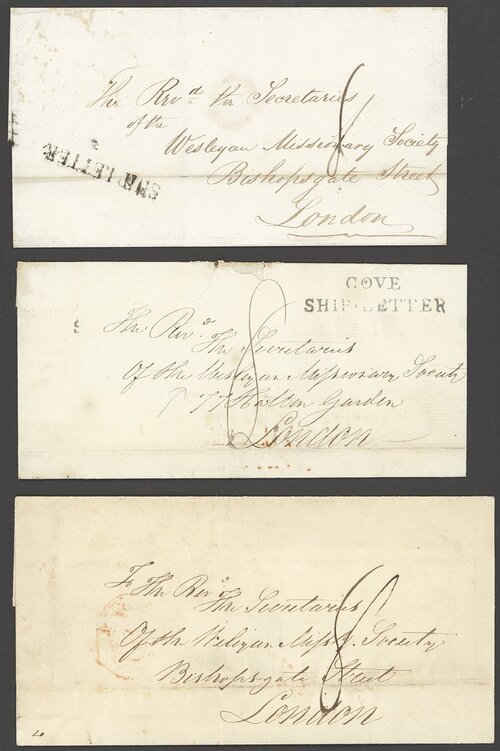 The Revd. the Secretaries
of the
Wesleyan Missionary Society
Bishopsgate Street
London
8
SHIP LETTER
COVE
SHIP LETTER
S
The Revd.
The Secretaries
Of the Wesleyan Missionary Society
77 Hatton Garden
London
8
To The Revd.
The Secretaries
Of the Wesleyan Missy. Society
Bishopsgate Street
London
8